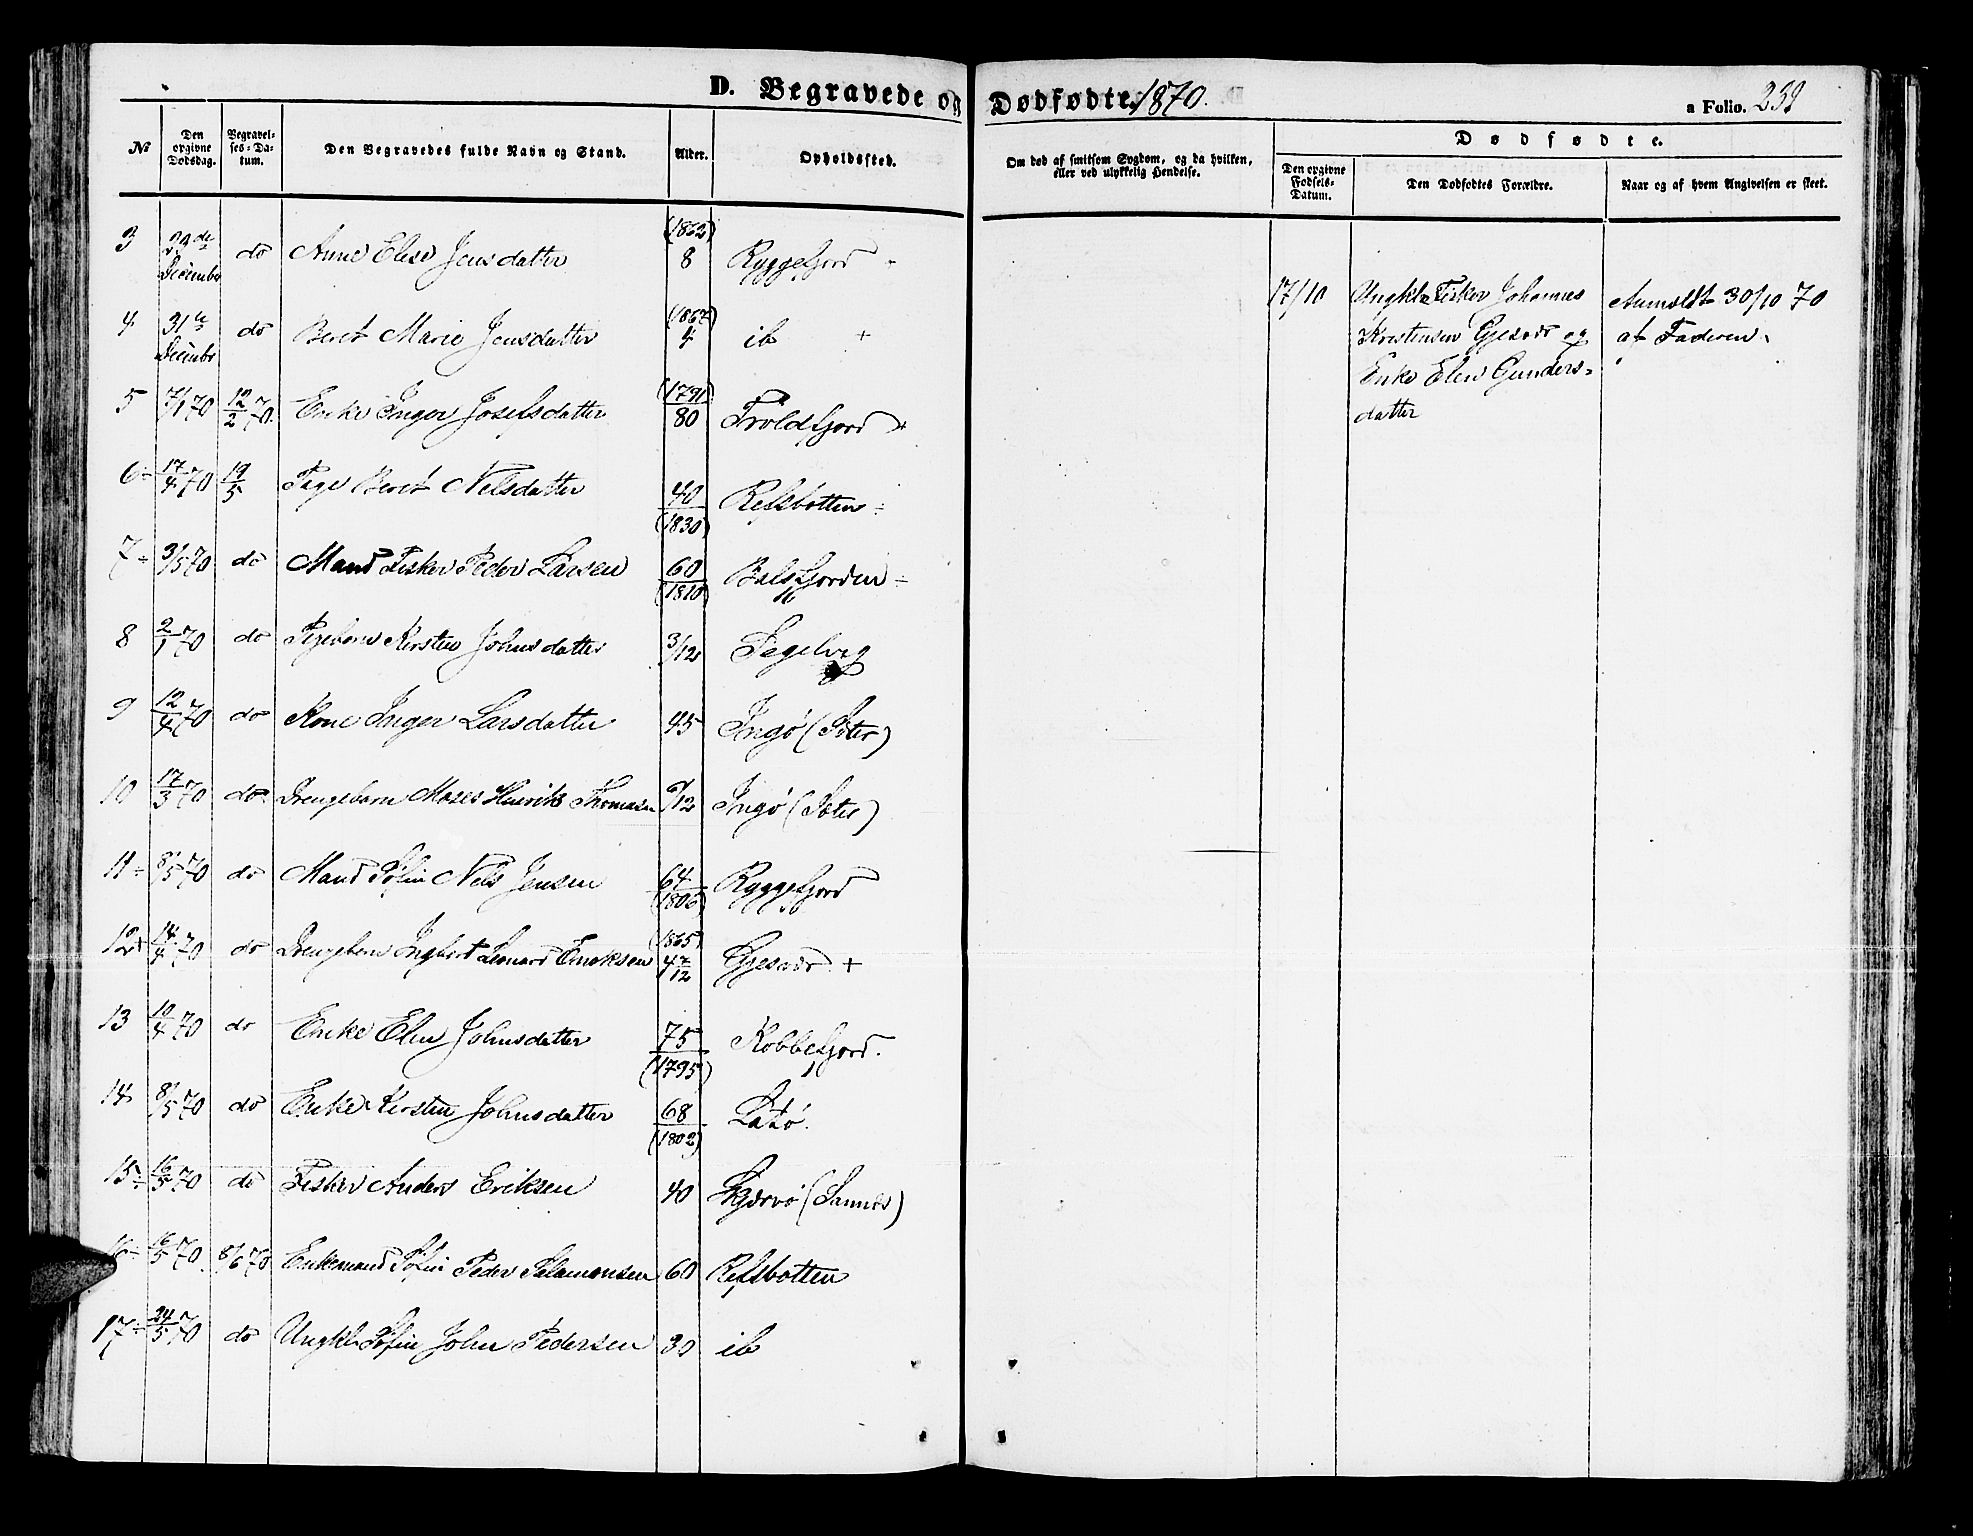 D. Begravede og Dødfødte. 1870.
a Folio. 239
No
Den opgivne Dødsdag.
Begravelses-Datum.
Den Begravedes fulde Navn og Stand.
Alder.
Opholdssted.
Om død af smitsom Sygdom, og da hvilken, eller ved ulykkelig Hendelse.
Dødfødte.
Den opgivne Fødsels-Datum.
Den Dødfødtes Forældre.
Naar og af hvem Angivelsen er skeet.
3 29de Decembr do Anne Elise Jensdatter (1862) 8 Ryggefjord
4 31te Decembr do Beret Marie Jensdatter (1867) 4 ib +
5 7/1 70 12/2 70. Enke Inger Josefsdatter (1791) 80 Troldfjord +
6 17/4 70 19/5 Pige Beret Nelsdatter 40 (1830) Refsbotten
7 3/5 70 do Mand Fisker Peder Larsen 60 (1810) Balsfjorden
8 2/1 70 do Pigebarn Kirsten Johnsdatter 3/12 Segelvig
9 12/4 70 do Kone Inger Larsdatter 45 Ingø (Soter)
10 17/3 70 do Drengebarn Moses Henrik Thomasen 6/12 Ingø (Soter)
11 8/5 70 do Mand Sofin Nels Jensen 64 (1806) Ryggefjord
12 14/4 70 do Drengebarn Ingbert Leonard (1865) 4 7/12 Gjesvær +
13 10/4 70 do Enke Elen Johnsdatter 75 (1795) Kobbefjord.
14 8/5 70 do Enke Kirsten Johnsdatter 68 (1802) Latø.
15 16/5 70 do Fisker Anders Eriksen 40 Skjervø (Sannes)
16 16/5 70 8/6 70 Enkemand Sofin Peder Salamonsen 60 Refsbotten
17 24/5 70 do Ungkl Sofin John Pedersen 30 ib
17/10
Ungkl Fisker Johannes
Kristensen Gjesvær og
Enke Elen Gunders-
datter
Anmeldt 30/10 70
af Faderen